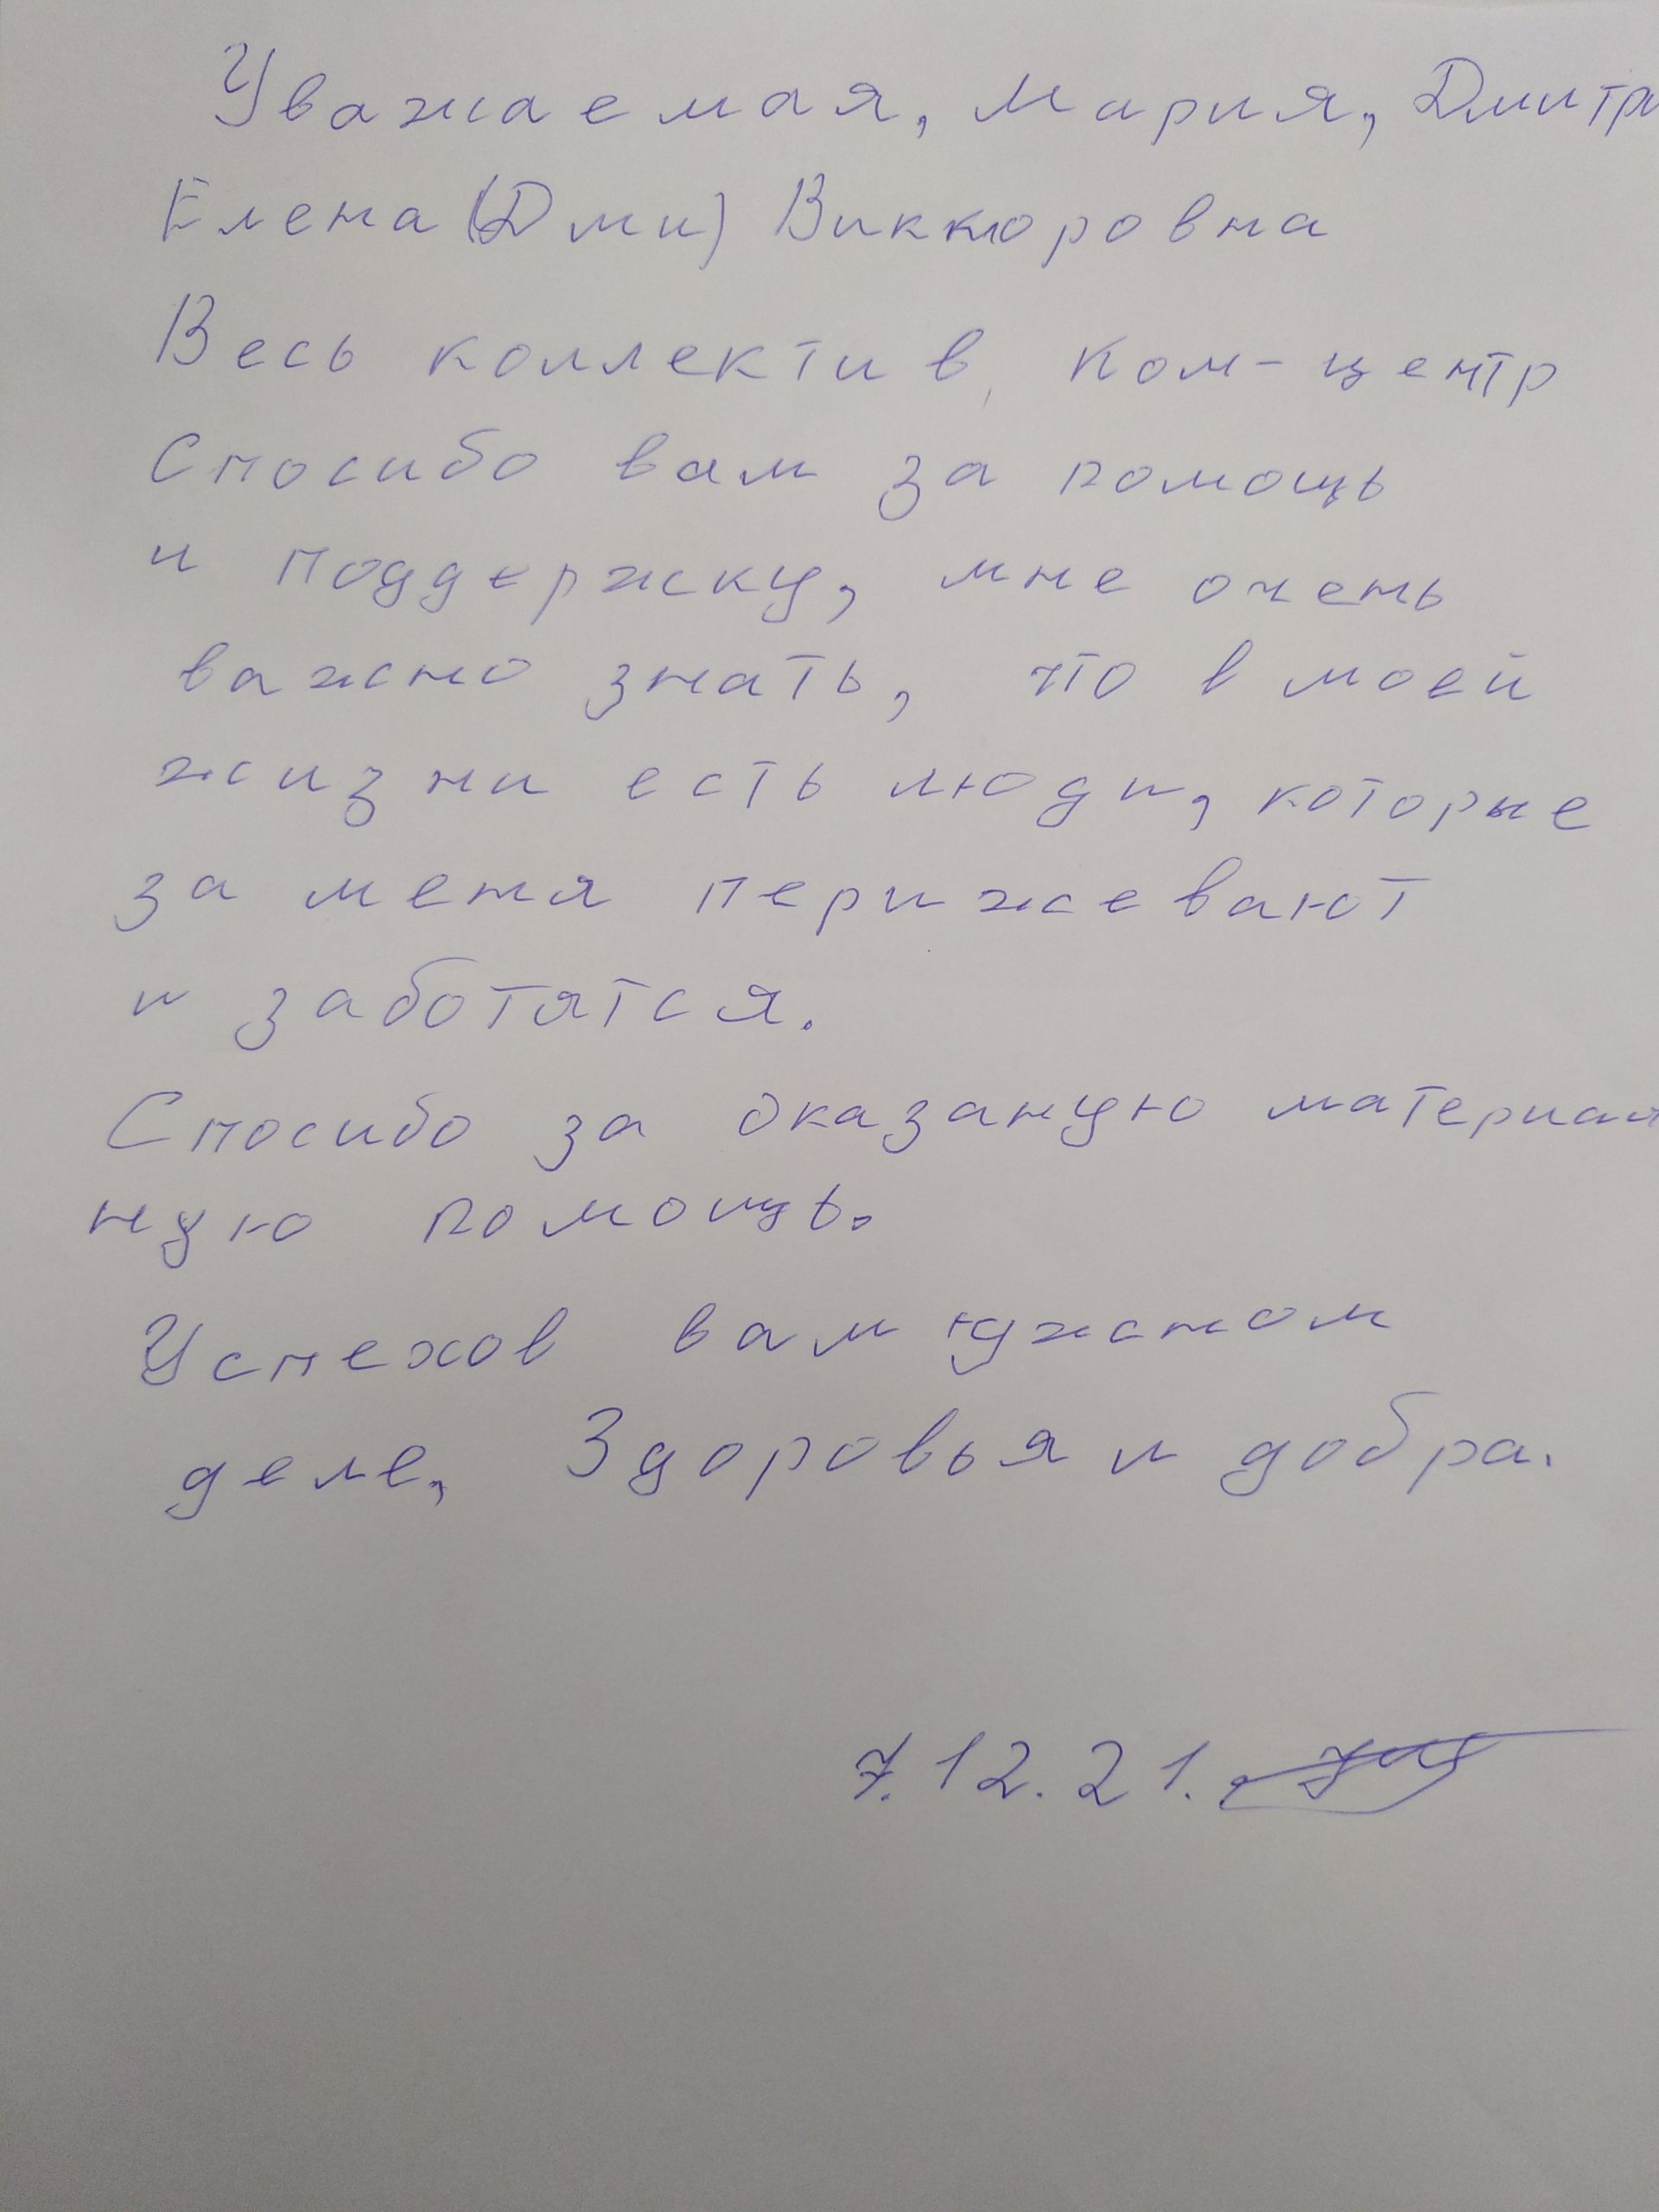 Уважаемая, Мария, Дмитри
Елена (Дми) Виккторовна
Весь коллектив, Ком-центр
Спосибо вам за помощь
и поддержку, мне очень
важно знать, что в моей
жизни есть люди, которые
за меня перижевают
и заботятся.
Спосибо за оказаную материал
ную помощь.
Успехов вам нужном
деле, Здоровья и добра.
7.12.21.